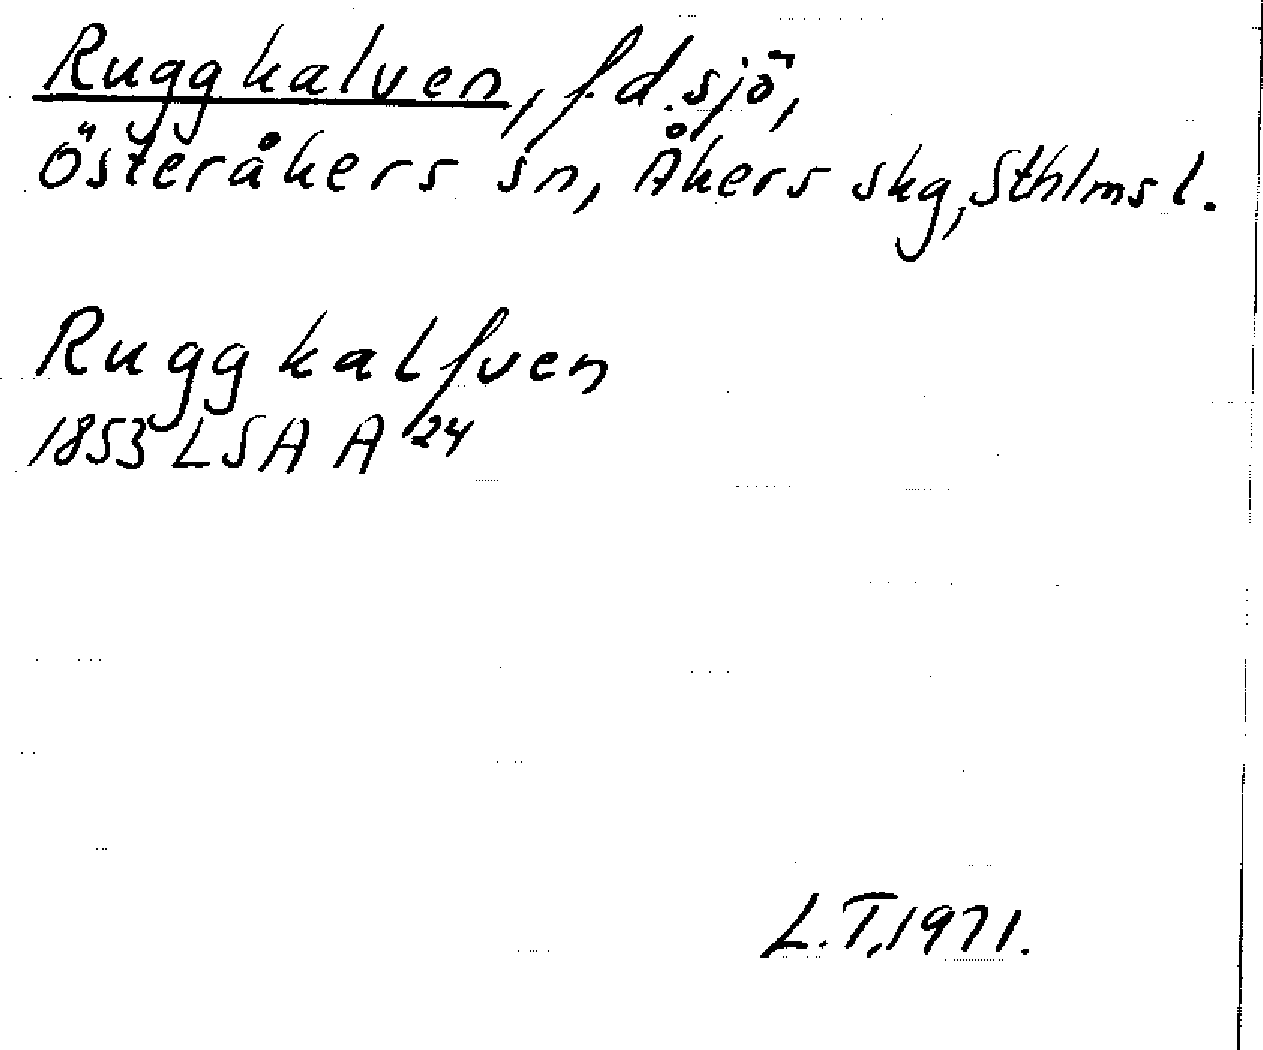 Ruggkalven, f.d. sjö,
Österåkers sn, Åkers skg, Sthlms l.
Ruggkalfven
1853 LSA A 24
L.T, 1971.